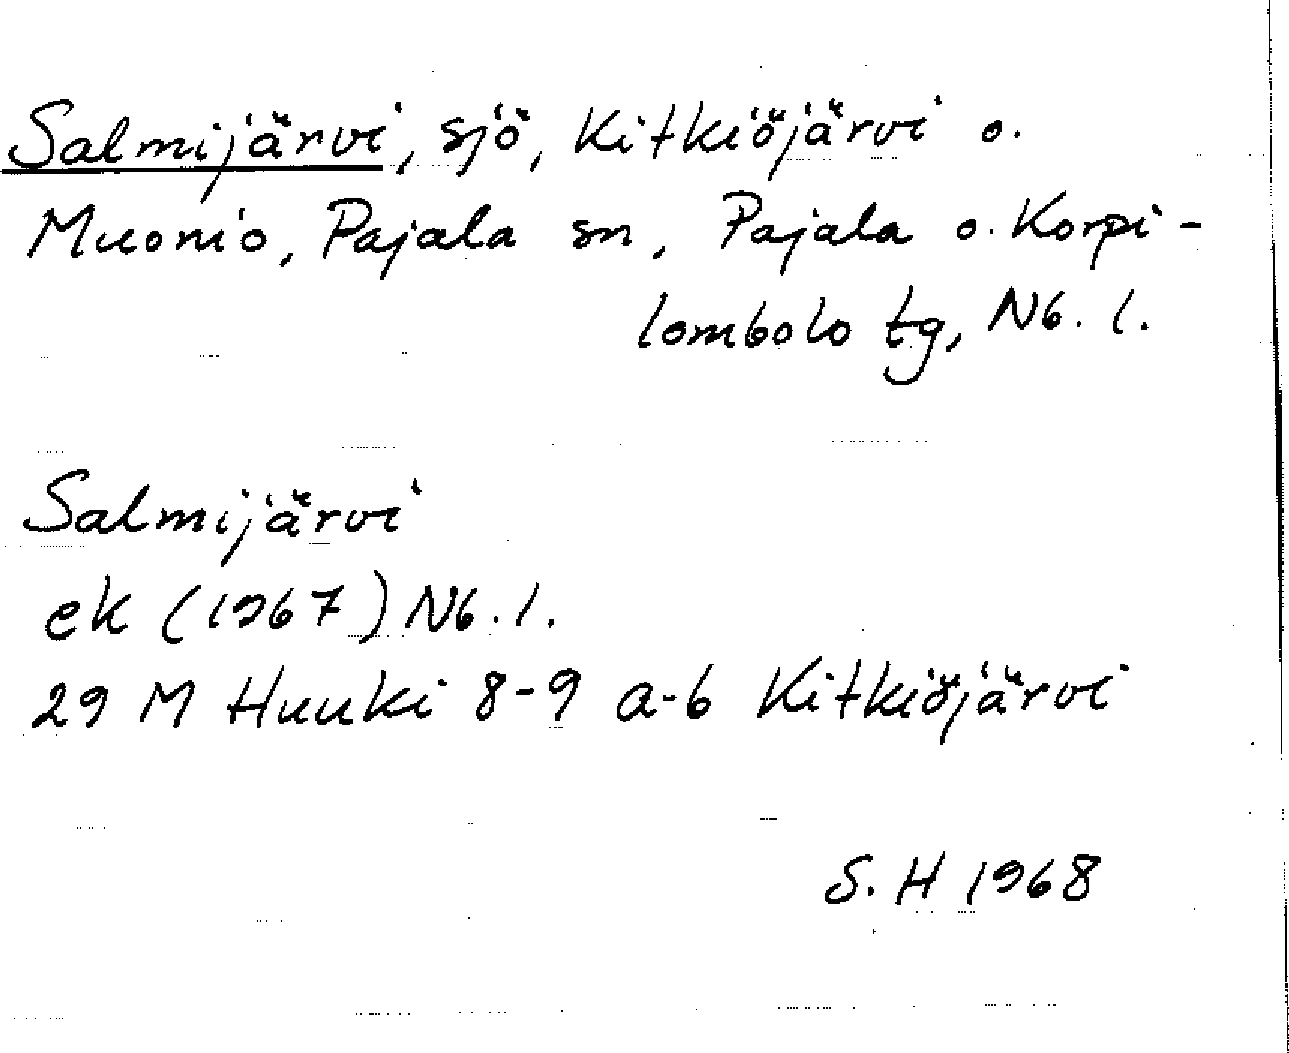 Salmijärvi, sjö, Kitkiöjärvi o.
Muonio, Pajala sn, Pajala o. Korpi-
lombolo tg, Nb. l.
Salmijärvi
ek (1967) Nb. l.
29 M Huuki 8-9 a-b Kitkiöjärvi
S. H 1968